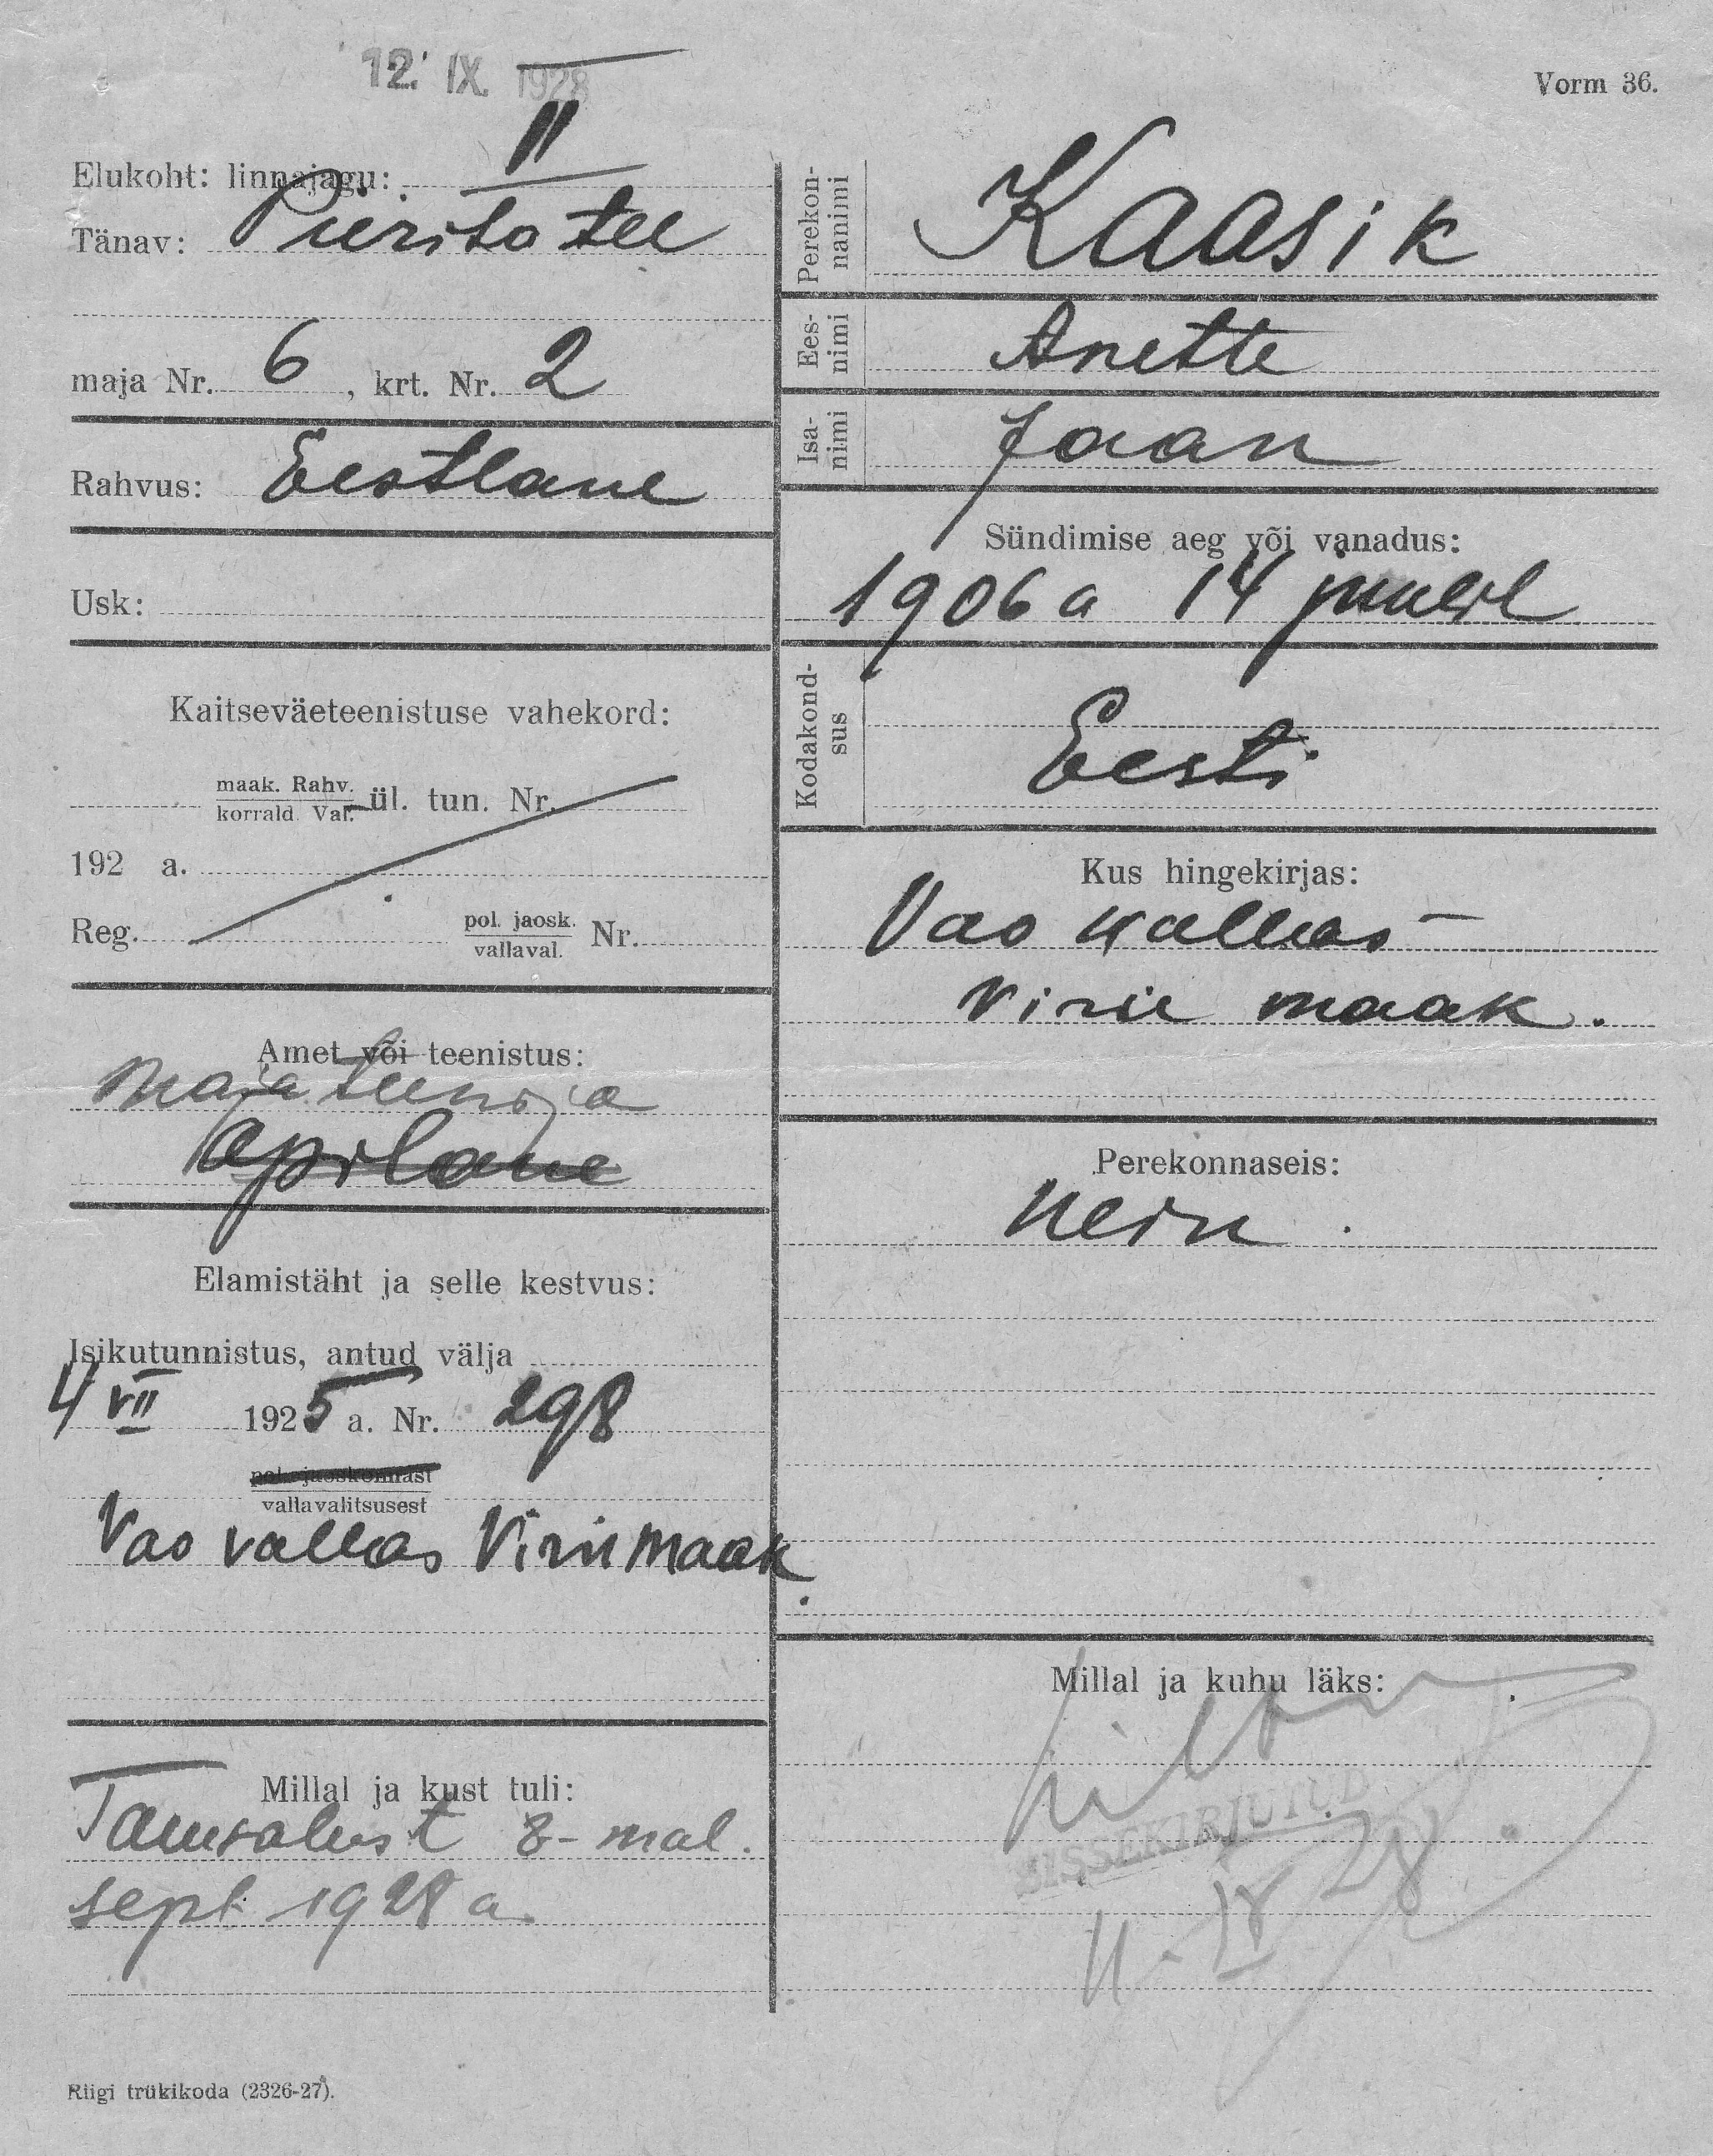 12. IX. 1928
Vorm 36.
Elukoht: linnajagu: II
Tänav: Piirita tee
maja Nr. 6, krt. Nr. 2
Rahvus: Eestlane
Usk:
Kaitseväeteenistuse vahekord:
maak. Rahv.
korrald. Val. ül. tun. Nr.
192 a.
Reg. pol. jaosk.
vallaval. Nr.
Amet või teenistus:
Majateenija
õpilane
Elamistäht ja selle kestvus:
Isikutunnistus, antud välja
4 VII 1925 a. Nr. 298
pol. jaoskonnast
vallavalitsusest
Vao vallas Viru maak.
Millal ja kust tuli:
Tamsalust 8-mal.
sept. 1928 a.
Riigi trükikoda (2326-27).
Perekon-
nanimi
Kaasik
Ees-
nimi
Anette
Isa-
nimi
Jaan
Sündimise aeg või vanadus:
1906 a 14
Kodakond-
sus
Eesti
Kus hingekirjas:
Vao vallas
Viru maak.
Perekonnaseis:
Neiu.
Millal ja kuhu läks:
SISSEKIRJUTUD
28